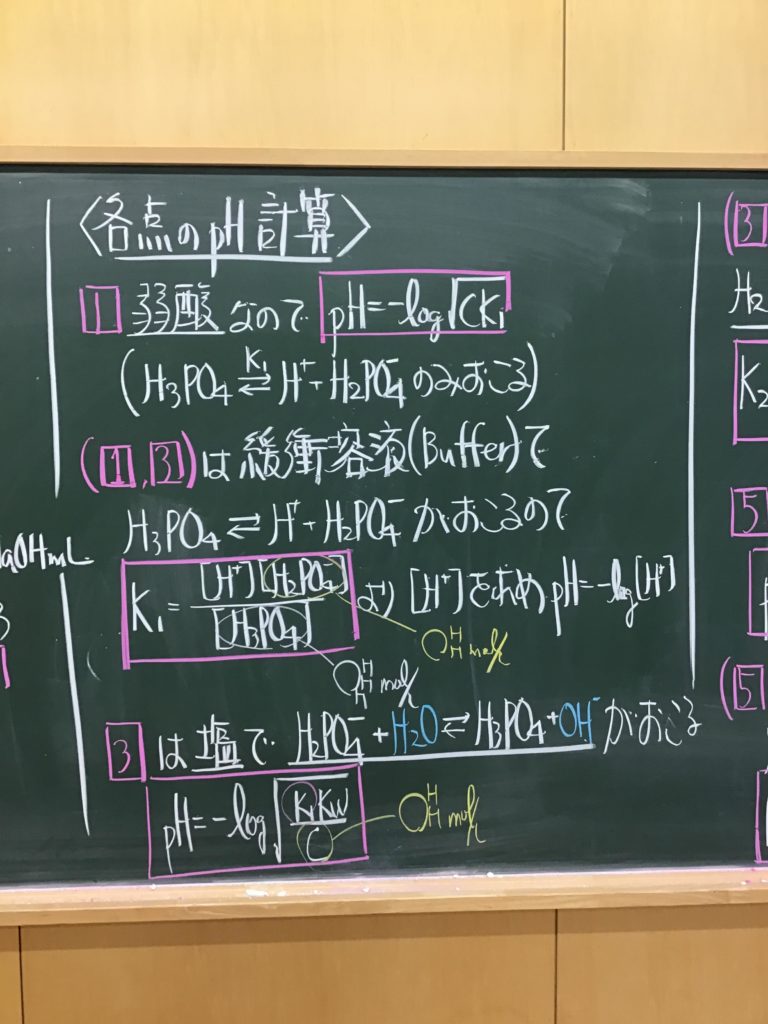 〈各点のpH計算〉
1 弱酸なので pH=-log√CK₁
(H₃PO₄ ⇄ K₁ H⁺+H₂PO₄⁻ のみおこる)
(1,3)は緩衝溶液(Buffer)で
H₃PO₄ ⇄ H⁺+H₂PO₄⁻ がおこるので
K₁=[H⁺][H₂PO₄⁻]/[H₃PO₄] より [H⁺]を求め pH=-log[H⁺]
3 は塩で H₂PO₄⁻+H₂O⇄H₃PO₄+OH⁻ がおこる
pH=-log√K₁Kw/C
aOHmL
(3
H₂
K₂
5
(5